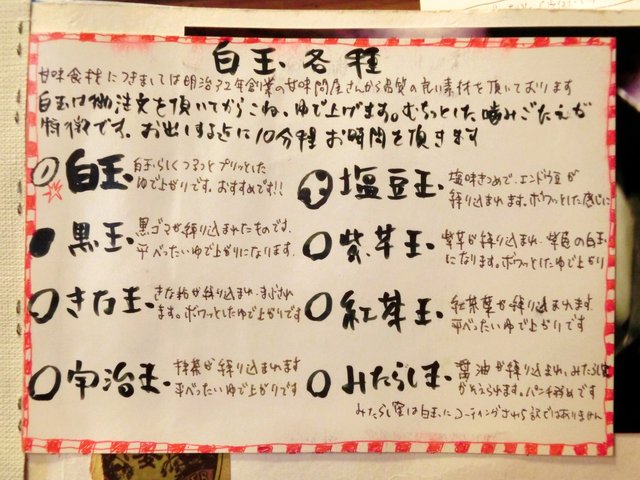 白玉各種
甘味食材につきましては明治32年創業の甘味問屋さんから品質の良い素材を頂いております
白玉は御注文を頂いてからこね、ゆで上げます。むちっとした噛みごたえが
特徴です。お出しするのに10分程お時間を頂きます
白玉。
白玉らしくつるっとプリッとした
ゆで上がりです。おすすめです!!
黒玉。
黒ゴマが練り込まれたものです。
平べったいゆで上がりになります。
きな玉。
きな粉が練り込まれ、まぶされ
ます。ボワっとしたゆで上がりです
宇治玉。
抹茶が練り込まれます
平べったいゆで上がりです
塩豆玉。
塩味きつめで、エンドウ豆が
練り込まれます。ボワっとした感じに
紫芋玉。
紫芋が練り込まれ、紫色の白玉
になります。ボワっとしたゆで上がり
紅茶玉。
紅茶葉が練り込まれます
平べったいゆで上がりです
みたらし玉。
醤油が練り込まれ、みたらし蜜
がそえられます。パンチ強めです
みたらし蜜は白玉にコーティングされる訳ではありません